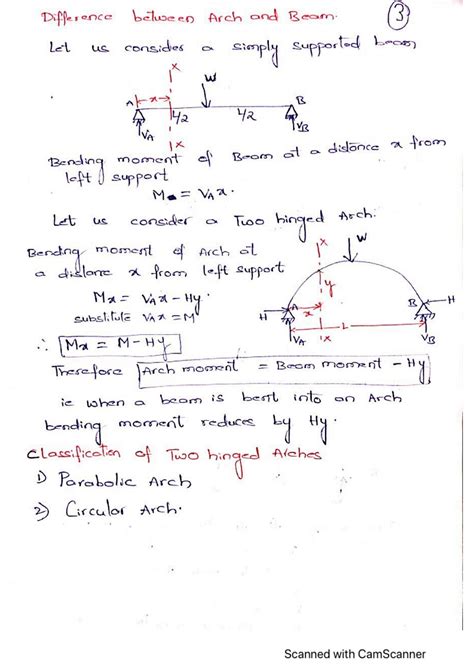 Difference between Arch and Beam.
3
Let us consider a simply supported beam
x
W
A
x
B
L/2
L/2
VA
VB
x
Bending moment of Beam at a distance x from
left support
M = VA x.
Let us consider a Two hinged Arch.
Bending moment of Arch at
a distance x from left support
x
W
y
Mx = VA x - Hy
substitute VA x = M
H
A
x
B
H
L
VA
x
VB
∴ Mx = M - Hy
Therefore Arch moment = Beam moment - Hy
ie when a beam is bent into an Arch
bending moment reduces by Hy.
Classification of Two hinged Arches
1) Parabolic Arch
2) Circular Arch.
Scanned with CamScanner